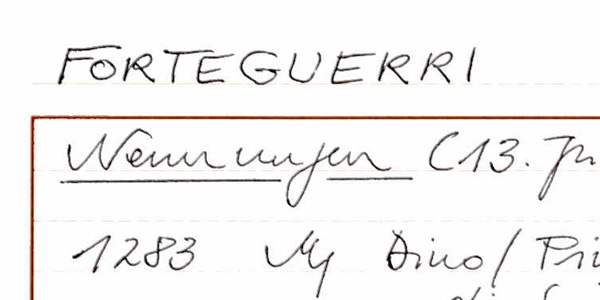 FORTEGUERRI
Nennungen (13. Jh
1283 Mg Dino / Pri